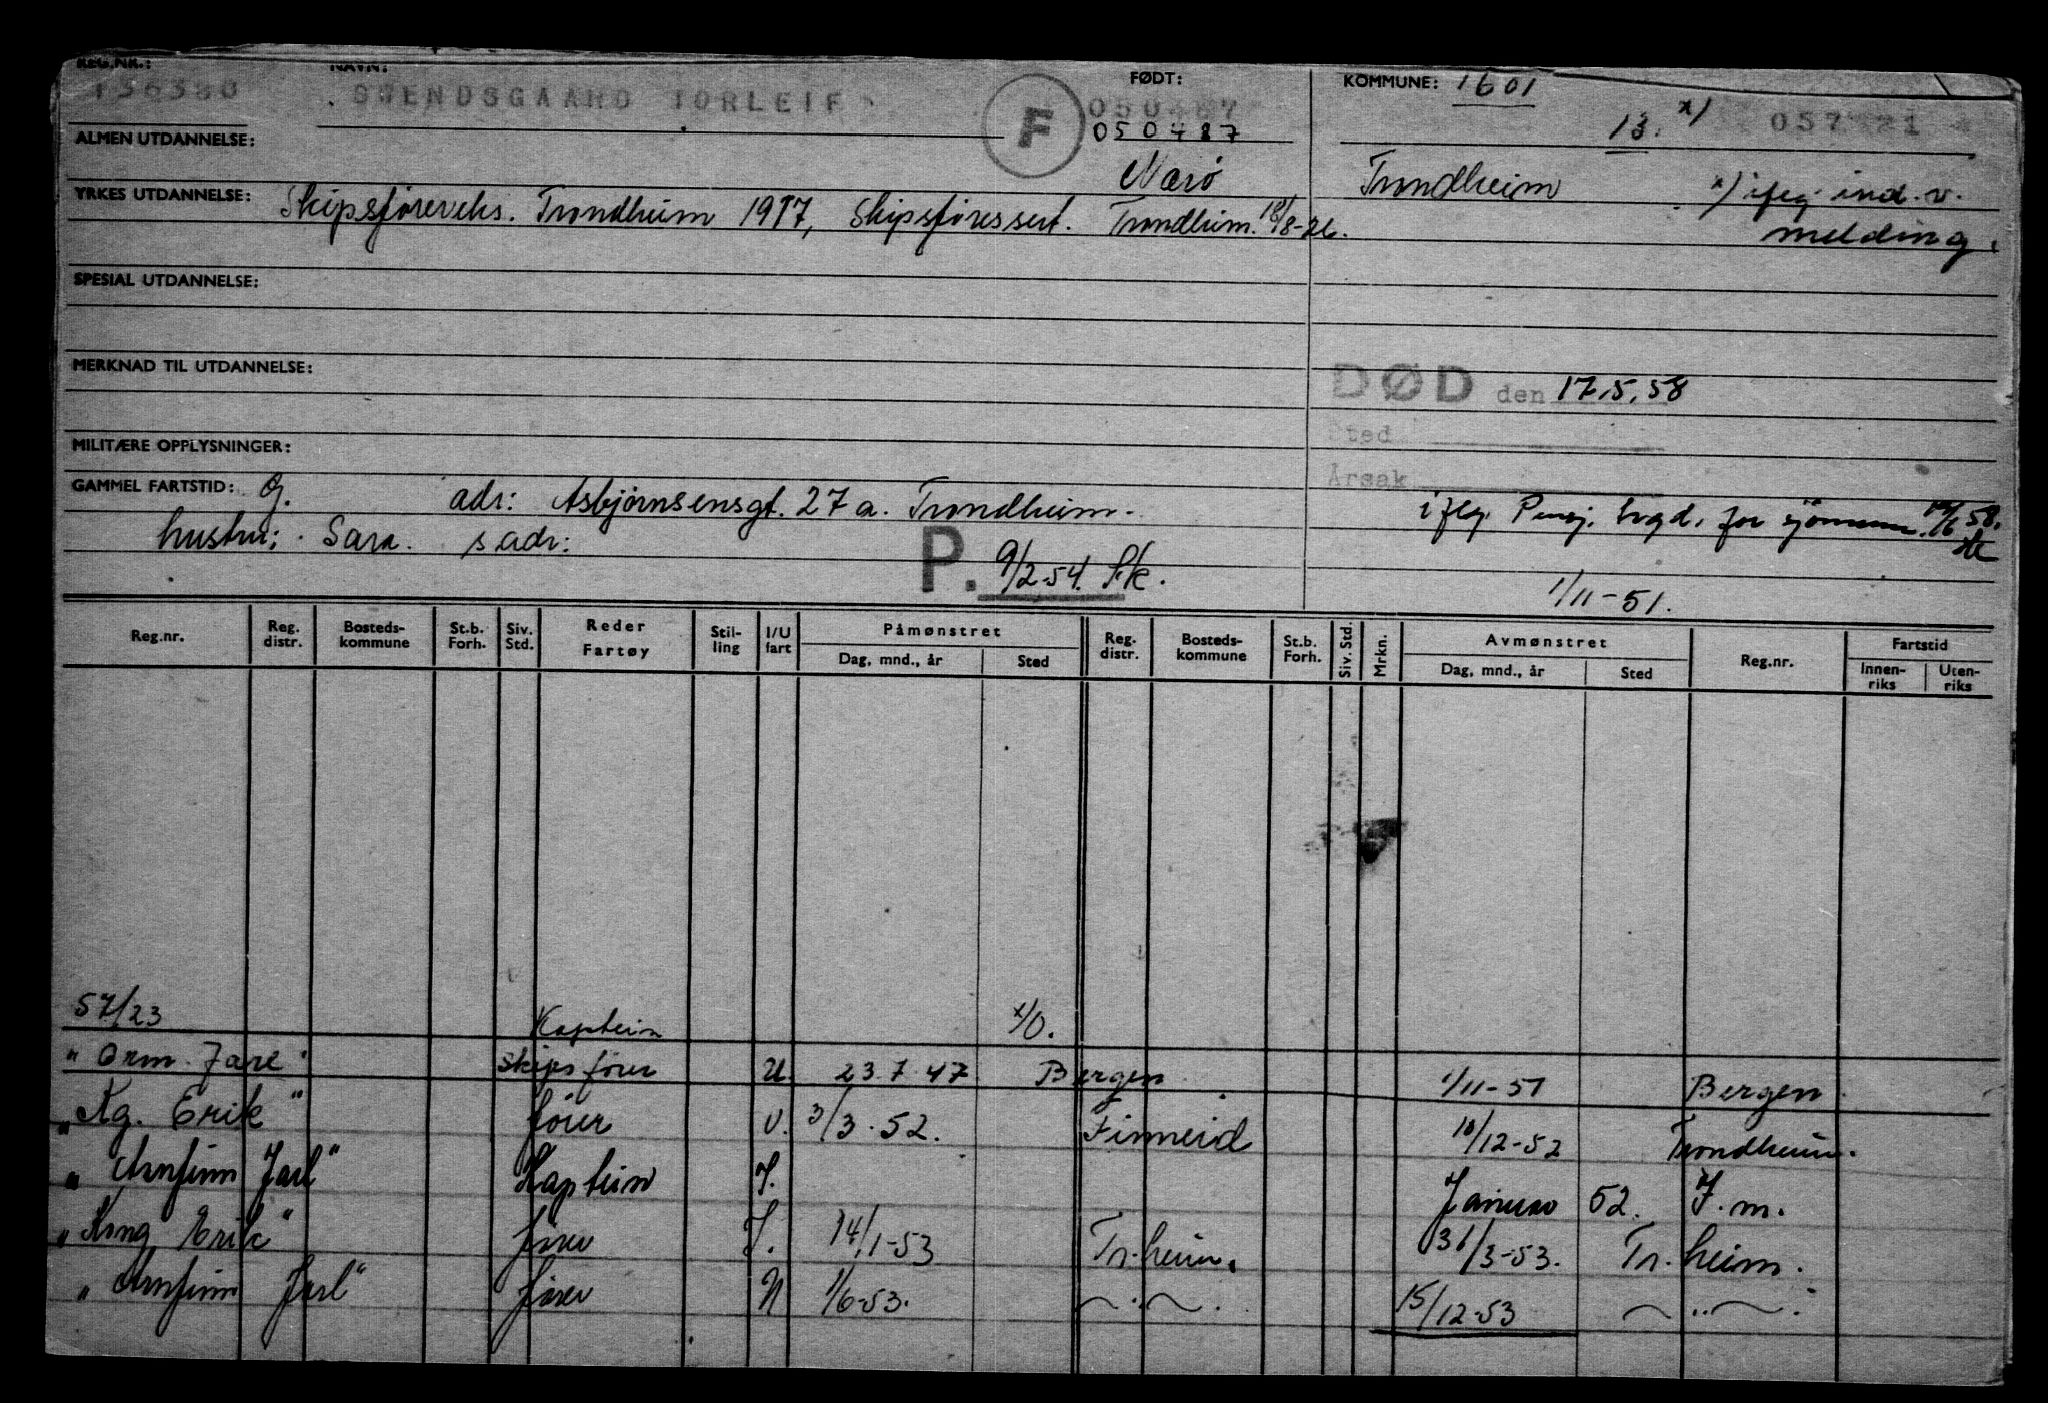 REG.NR.: NAVN: FØDT: KOMMUNE: 1601
TORLEIF F 050487 13. x)
050487
ALMEN UTDANNELSE:
Nærö Trondheim x) ifلg ind. v.
YRKES UTDANNELSE: Skipsförereks. Trondheim 1917, Skipsföressert. Trondheim. 18/8-26. melding.
SPESIAL UTDANNELSE:
MERKNAD TIL UTDANNELSE:
DØD den 17.5.58
Sted
MILITÆRE OPPLYSNINGER:
Årsak
GAMMEL FARTSTID: G. adr: Asbjörnsensgt. 27 a. Trondheim.
iflg. Pensj. trygd. for sjömenn. 58.
hustru: Sara. s. adr:
P. 9/2-54. Sk.
1/11-51.
Reg.nr. Reg. distr. Bosteds-kommune St.b. Forh. Siv. Std. Reder Fartøy Stil-ling I/U fart Påmønstret Dag, mnd., år Sted Reg. distr. Bosteds-kommune St.b. Forh. Siv. Std. Mrkn. Avmønstret Dag, mnd., år Sted Reg.nr. Fartstid Innen-riks Uten-riks
57/23 Kaptein x/O.
"Orm Jarl" Skipsförer U 23.7.47 Bergen 1/11-51 Bergen
"Kg. Erik" förer U. 3/3.52. Finneid 10/12-52 Trondheim.
"Arnfinn Jarl" Kaptein I. Januar 52. I.m.
"Kong Erik" förer I. 14/1-53 Tr.heim. 31/3-53. Tr.heim.
"Arnfinn Jarl" förer U 1/6-53. 15/12-53